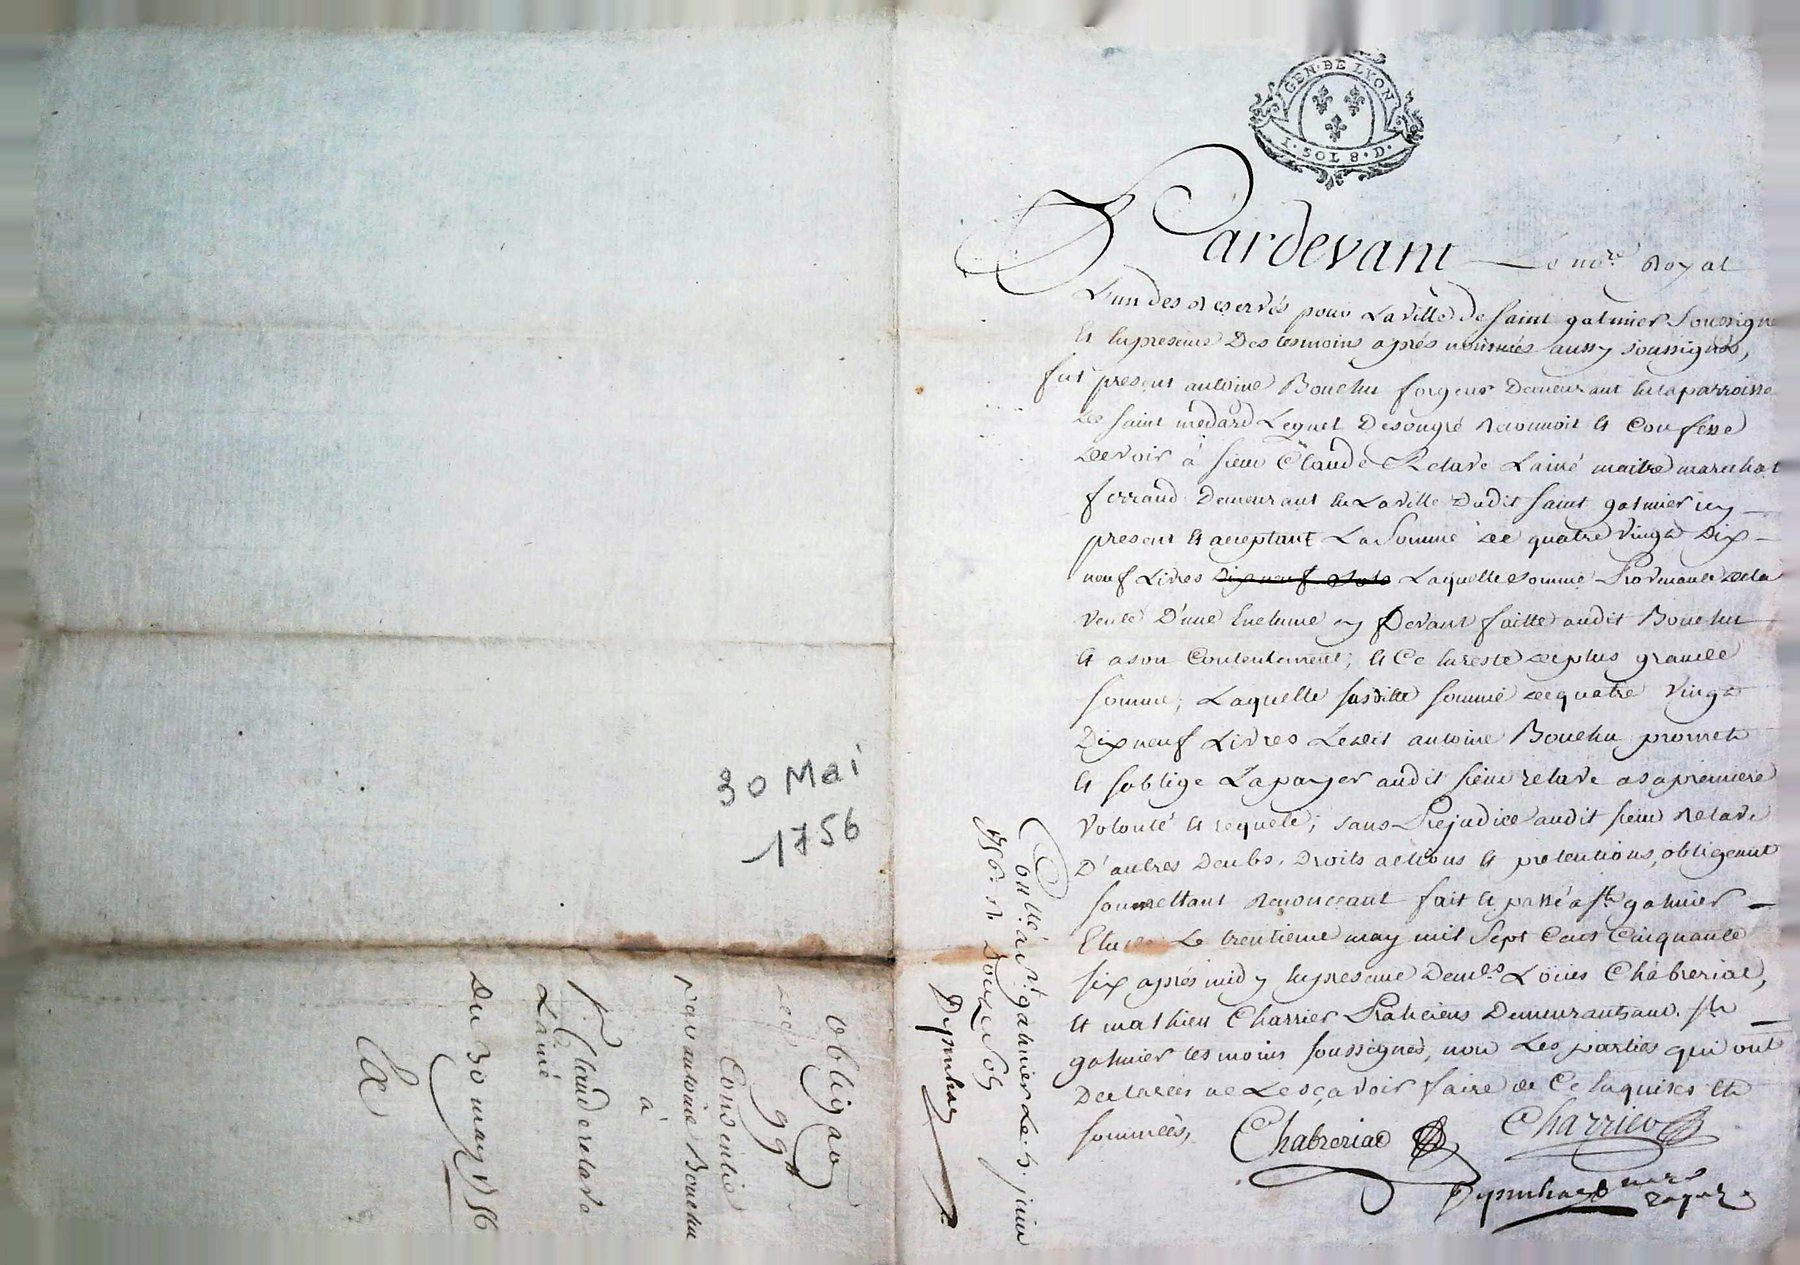 GEN · DE LYON
1 · SOL 8 · D ·
Pardevant Le no.re Royal
L'un des reservés pour La ville de Saint galmier Soussigné
Et En presence Des tesmoins après nommés aussy soussignés,
fut present antoine Bouchu forgeur Demeurant En la parroisse
De saint medard Lequel De son gré reconnoit Et Confesse
Devoir à sieur Claude Relave L'ainé maitre marechal
ferrand Demeurant En La ville Dudit saint galmier icy
present Et acceptant La Somme de quatre vingt Dix
neuf Livres dix neuf sols Laquelle somme Provenante de la
vente D'une Enclume cy Devant faitte audit Bouchu
Et a son Contentement; Et Ce En reste de plus grande
somme; Laquelle susditte somme de quatre vingt
Dix neuf Livres Ledit antoine Bouchu promet
Et soblige La payer audit sieur relave a sa premiere
volonté Et requete; sans Prejudice audit sieur relave
D'autres Deubs, Droits actions Et pretentions, obligeant
soumettant renonceant fait Et passé a St galmier
Etude Le trentieme may mil Sept Cent Cinquante
six après midy En presence De me.s Loüis Chabreriat,
Et mathieu Charrier Praticiens Demeurants aud. St
galmier tesmoins soussignés, non Les parties qui ont
Declarées ne Le sçavoir faire de Ce Enquises Et
sommées,
Chabreriat Charrier
no.re royal
Con.llé à St galmier Le 5. juin
1756. R. Douze sols
30 Mai
1756
obligaõn
De 99 ll
Consentie
par antoine Bouchu
à
sr. Claude relave
L'ainé
Du 30 may 1756